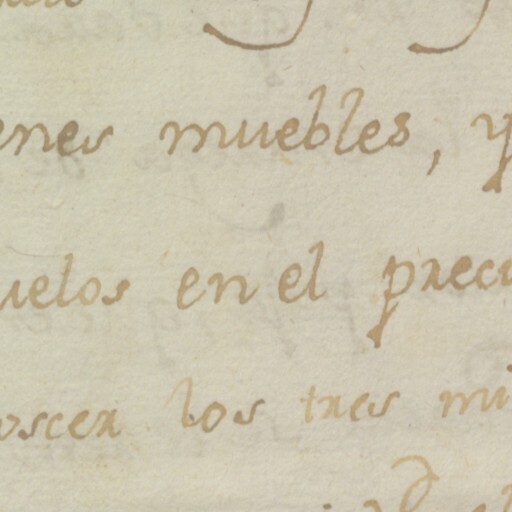 enes muebles, y
uelos en el preci
oscer los tres mi